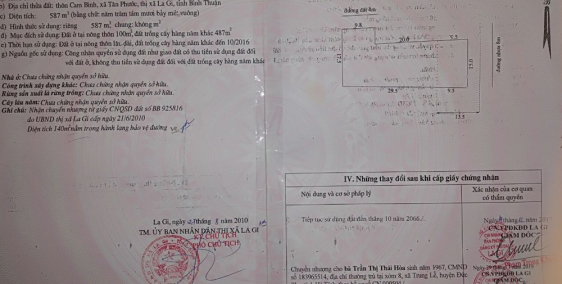 b) Địa chỉ thửa đất: thôn Cam Bình, xã Tân Phước, thị xã La Gi, tỉnh Bình Thuận
c) Diện tích: 587 m² (bằng chữ: năm trăm tám mươi bảy mét vuông)
d) Hình thức sử dụng: riêng 587 m², chung: không m²
đ) Mục đích sử dụng: Đất ở tại nông thôn 100m², đất trồng cây hàng năm khác 487m²
e) Thời hạn sử dụng: Đất ở tại nông thôn lâu dài, đất trồng cây hàng năm khác đến 10/2016
g) Nguồn gốc sử dụng: Công nhận quyền sử dụng đất như giao đất có thu tiền sử dụng đất đối với đất ở, không thu tiền sử dụng đất đối với đất trồng cây hàng năm khác
Nhà ở: Chưa chứng nhận quyền sở hữu.
Công trình xây dựng khác: Chưa chứng nhận quyền sở hữu.
Rừng sản xuất là rừng trồng: Chưa chứng nhận quyền sở hữu.
Cây lâu năm: Chưa chứng nhận quyền sở hữu.
Ghi chú: Nhận chuyển nhượng từ giấy CNQSD đất số BB 925816
do UBND thị xã La Gi cấp ngày 21/6/2010
Diện tích 140m² nằm trong hành lang bảo vệ đường
La Gi, ngày tháng 8 năm 2010
TM. ỦY BAN NHÂN DÂN THỊ XÃ LA GI
KT. CHỦ TỊCH
PHÓ CHỦ TỊCH
đường đất 6m
9.8
20.0
5.5
15.0
29.5
5.5
15.5
IV. Những thay đổi sau khi cấp giấy chứng nhận
Nội dung và cơ sở pháp lý
Xác nhận của cơ quan
có thẩm quyền
Tiếp tục sử dụng đất đến tháng 10 năm 2066
CN.VPĐKĐĐ LA GI
GIÁM ĐỐC
Chuyển nhượng cho bà Trần Thị Thái Hòa sinh năm 1967, CMND
số 183965514, địa chỉ thường trú tại xóm 8, xã Trung Lễ, huyện Đức
CN.VPĐKĐĐ LA GI
GIÁM ĐỐC